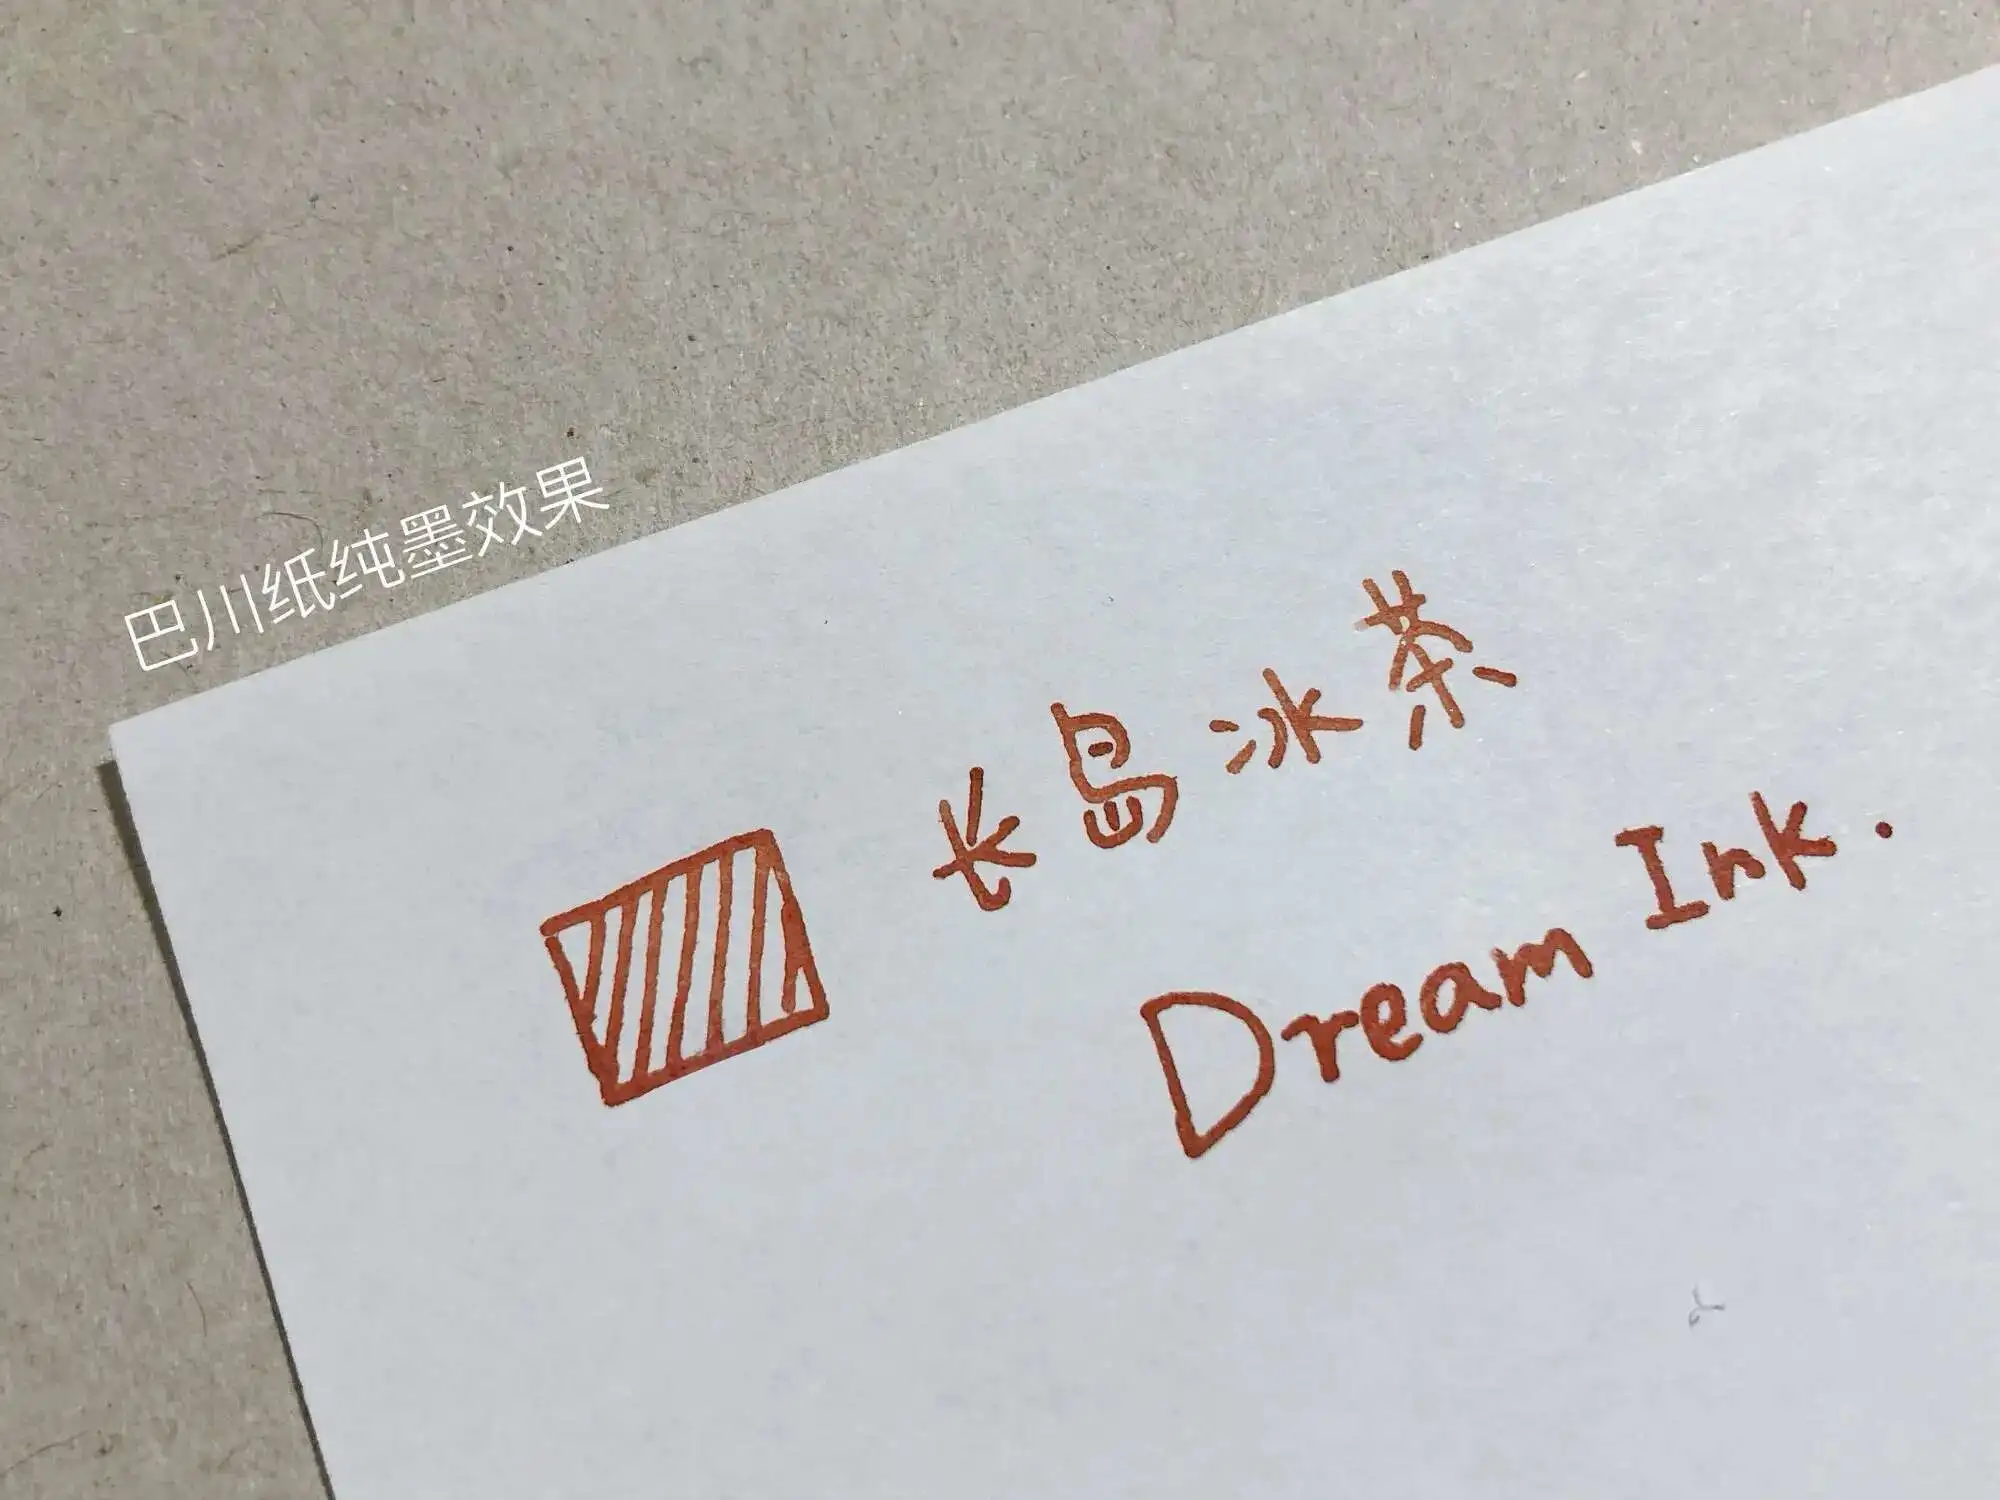 巴川纸纯墨效果
长岛冰茶
Dream Ink.